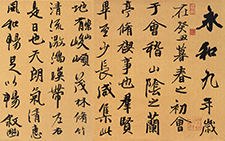 永和九年歲
在癸丑暮春之初會
于會稽山陰之蘭
亭脩禊事也羣賢
畢至少長咸集此
地有峻領茂林脩竹
清流激湍暎帶左右
是日也天朗氣清惠
風和暢足以暢敘幽